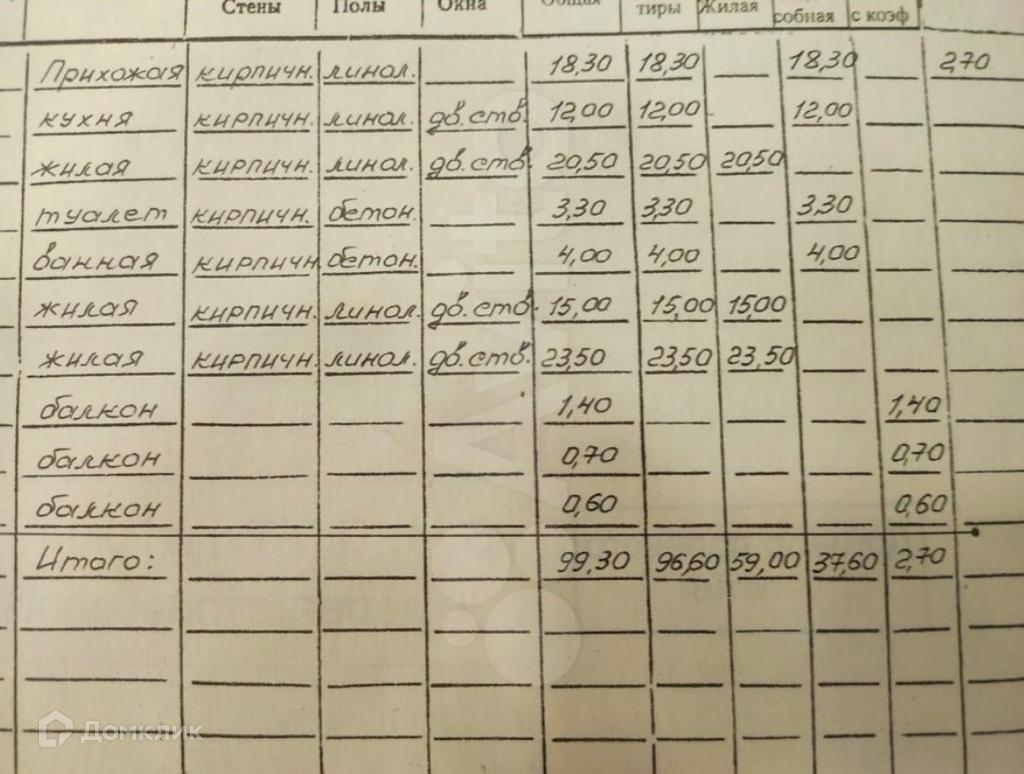 Стены Полы Окна Общая тиры Жилая собная с коэф
Прихожая кирпичн. линол. 18,30 18,30 18,30 2,70
кухня кирпичн. линол. дв. ств. 12,00 12,00 12,00
жилая кирпичн. линол. дв. ств. 20,50 20,50 20,50
туалет кирпичн. бетон. 3,30 3,30 3,30
ванная кирпичн бетон. 4,00 4,00 4,00
жилая кирпичн. линол. дв. ств. 15,00 15,00 15,00
жилая кирпичн. линол. дв. ств. 23,50 23,50 23,50
балкон 1,40 1,40
балкон 0,70 0,70
балкон 0,60 0,60
Итого: 99,30 96,60 59,00 37,60 2,70
Домклик